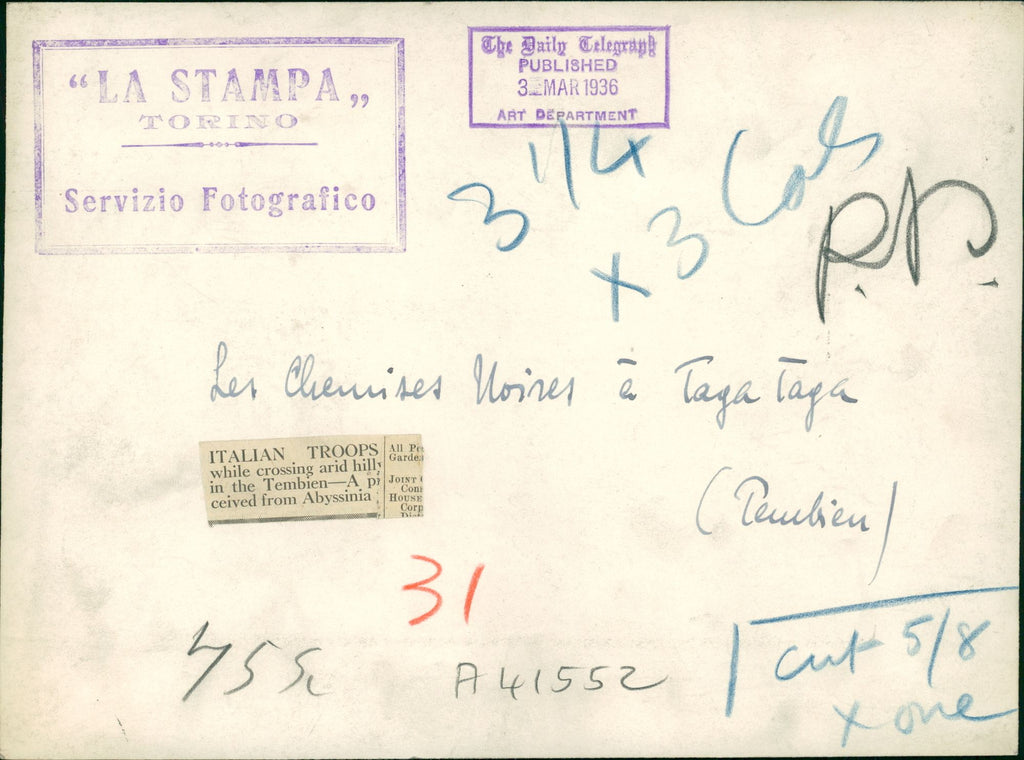 "LA STAMPA„
TORINO
Servizio Fotografico
The Daily Telegraph
PUBLISHED
3 MAR 1936
ART DEPARTMENT
3 1/4
x 3 Cols
P.P.
Les Chemises Noires à Taga Taga
(Tembien)
ITALIAN TROOPS
while crossing arid hilly
in the Tembien—A pi
ceived from Abyssinia
All Pe
Garde
JOINT
Con
HOUSE
Corp
Dist
31
A41552
1 cut 5/8
x one